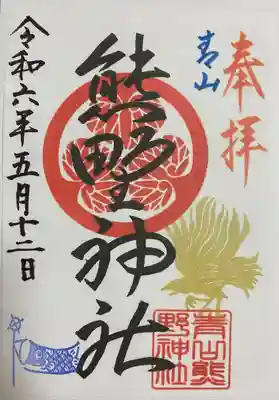 奉拝
青山
熊野神社
令和六年五月十二日
青山熊野神社